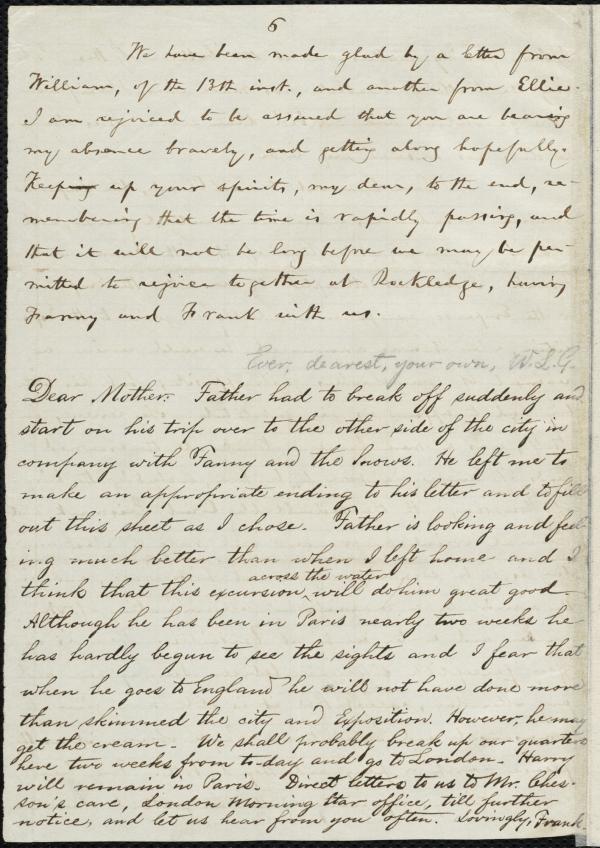 6
We have been made glad by a letter from
William, of the 13th inst., and another from Ellie.
I am rejoiced to be assured that you are bearing
my absence bravely, and getting along hopefully.
Keep up your spirits, my dear, to the end, re-
membering that the time is rapidly passing, and
that it will not be long before we may be per-
mitted to rejoice together at Rockledge, having
Fanny and Frank with us.
Ever, dearest, your own, W.L.G.
Dear Mother: Father had to break off suddenly and
start on his trip over to the other side of the city in
company with Fanny and the Snows. He left me to
make an appropriate ending to his letter and to fill
out this sheet as I chose. Father is looking and feel-
ing much better than when I left home and I
think that this excursion across the water will do him great good.
Although he has been in Paris nearly two weeks he
has hardly begun to see the sights and I fear that
when he goes to England he will not have done more
than skimmed the city and Exposition. However, he may
get the cream. We shall probably break up our quarters
here two weeks from to-day and go to London. Harry
will remain in Paris. Direct letters to us to Mr. Ches-
son's care, London Morning Star office, till further
notice, and let us hear from you often. Lovingly, Frank.